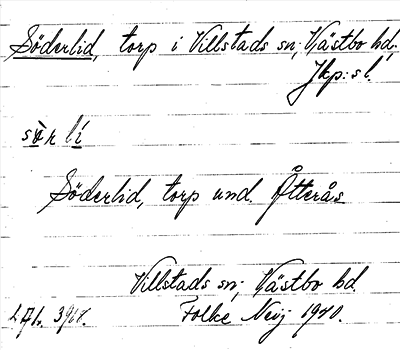 Söderlid, torp i Villstads sn; Västbo hd;
Jkp: s l.
sö̀r lí
Söderlid, torp und. Åtterås
Villstads sn; Västbo hd.
Folke Neij 1940.